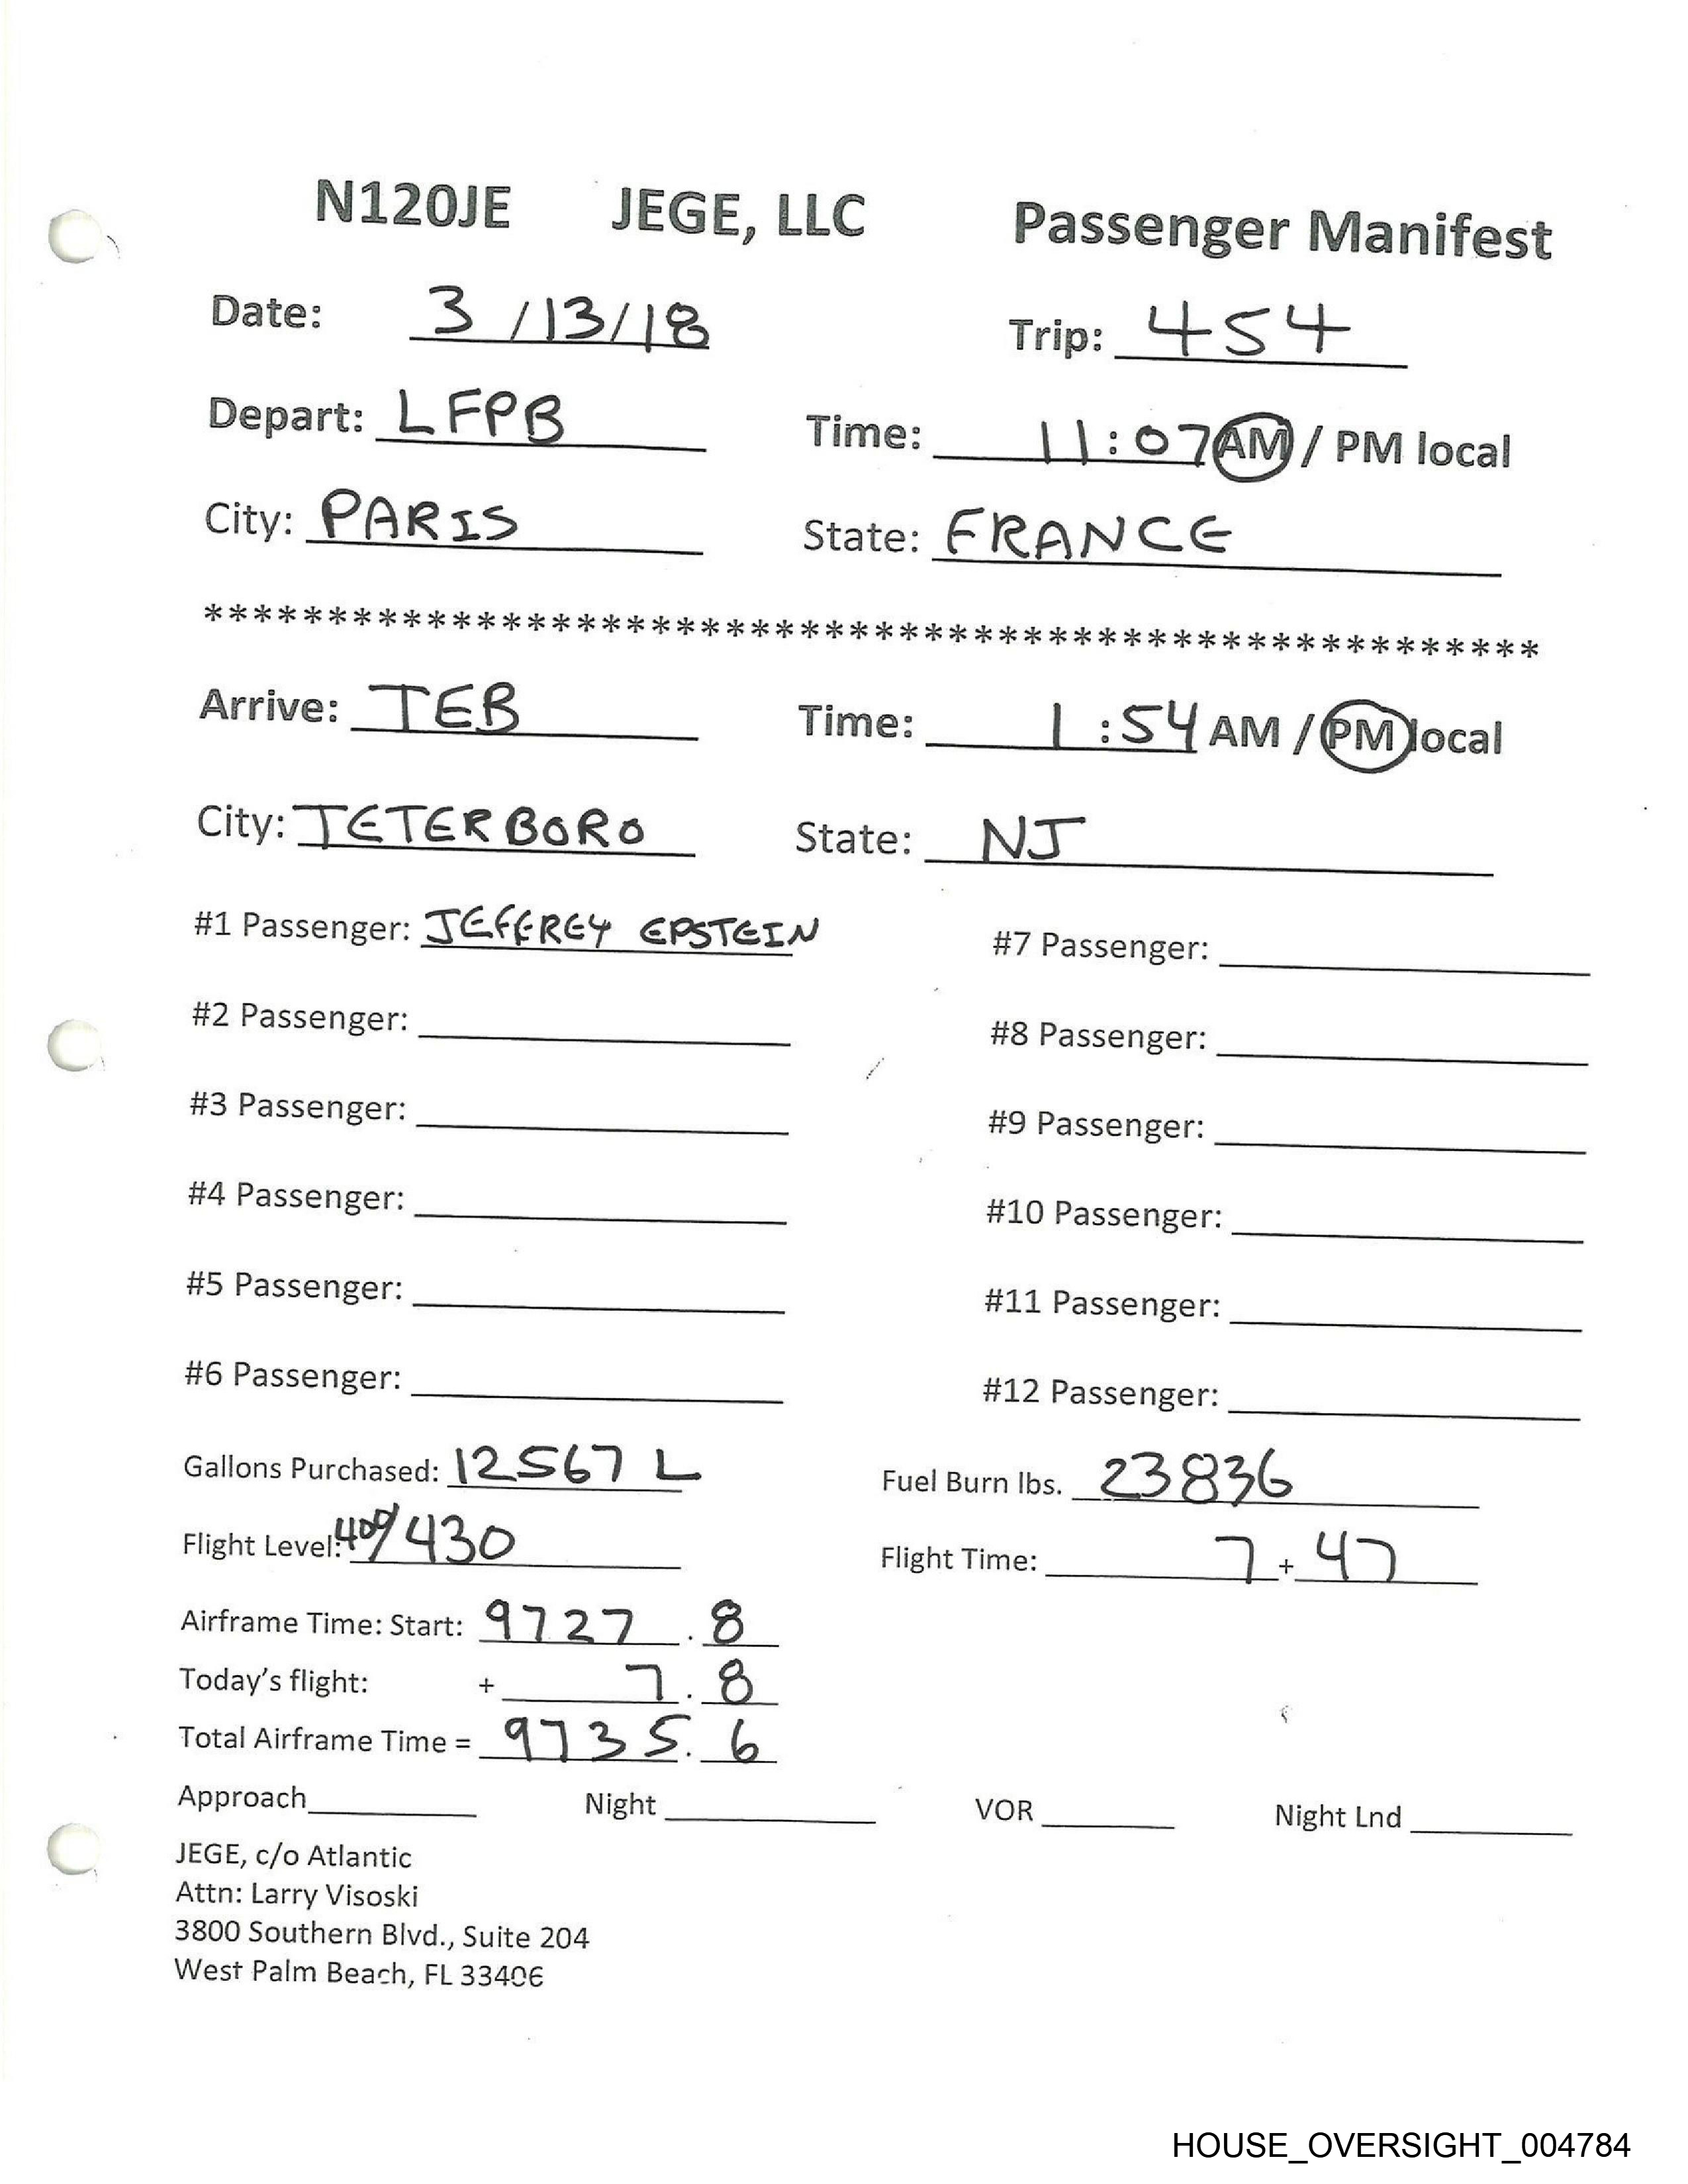 N120JE JEGE, LLC Passenger Manifest
Date: 3/13/18 Trip: 454
Depart: LFPB Time: 11:07 AM / PM local
City: PARIS State: FRANCE
******************************************************
Arrive: TEB Time: 1:54 AM / PM local
City: TETERBORO State: NJ
#1 Passenger: JEFFREY EPSTEIN #7 Passenger:
#2 Passenger: #8 Passenger:
#3 Passenger: #9 Passenger:
#4 Passenger: #10 Passenger:
#5 Passenger: #11 Passenger:
#6 Passenger: #12 Passenger:
Gallons Purchased: 12567 L Fuel Burn lbs. 23836
Flight Level: 400/430 Flight Time: 7 + 47
Airframe Time: Start: 9727.8
Today's flight: + 7.8
Total Airframe Time = 9735.6
Approach Night VOR Night Lnd
JEGE, c/o Atlantic
Attn: Larry Visoski
3800 Southern Blvd., Suite 204
West Palm Beach, FL 33406
HOUSE_OVERSIGHT_004784